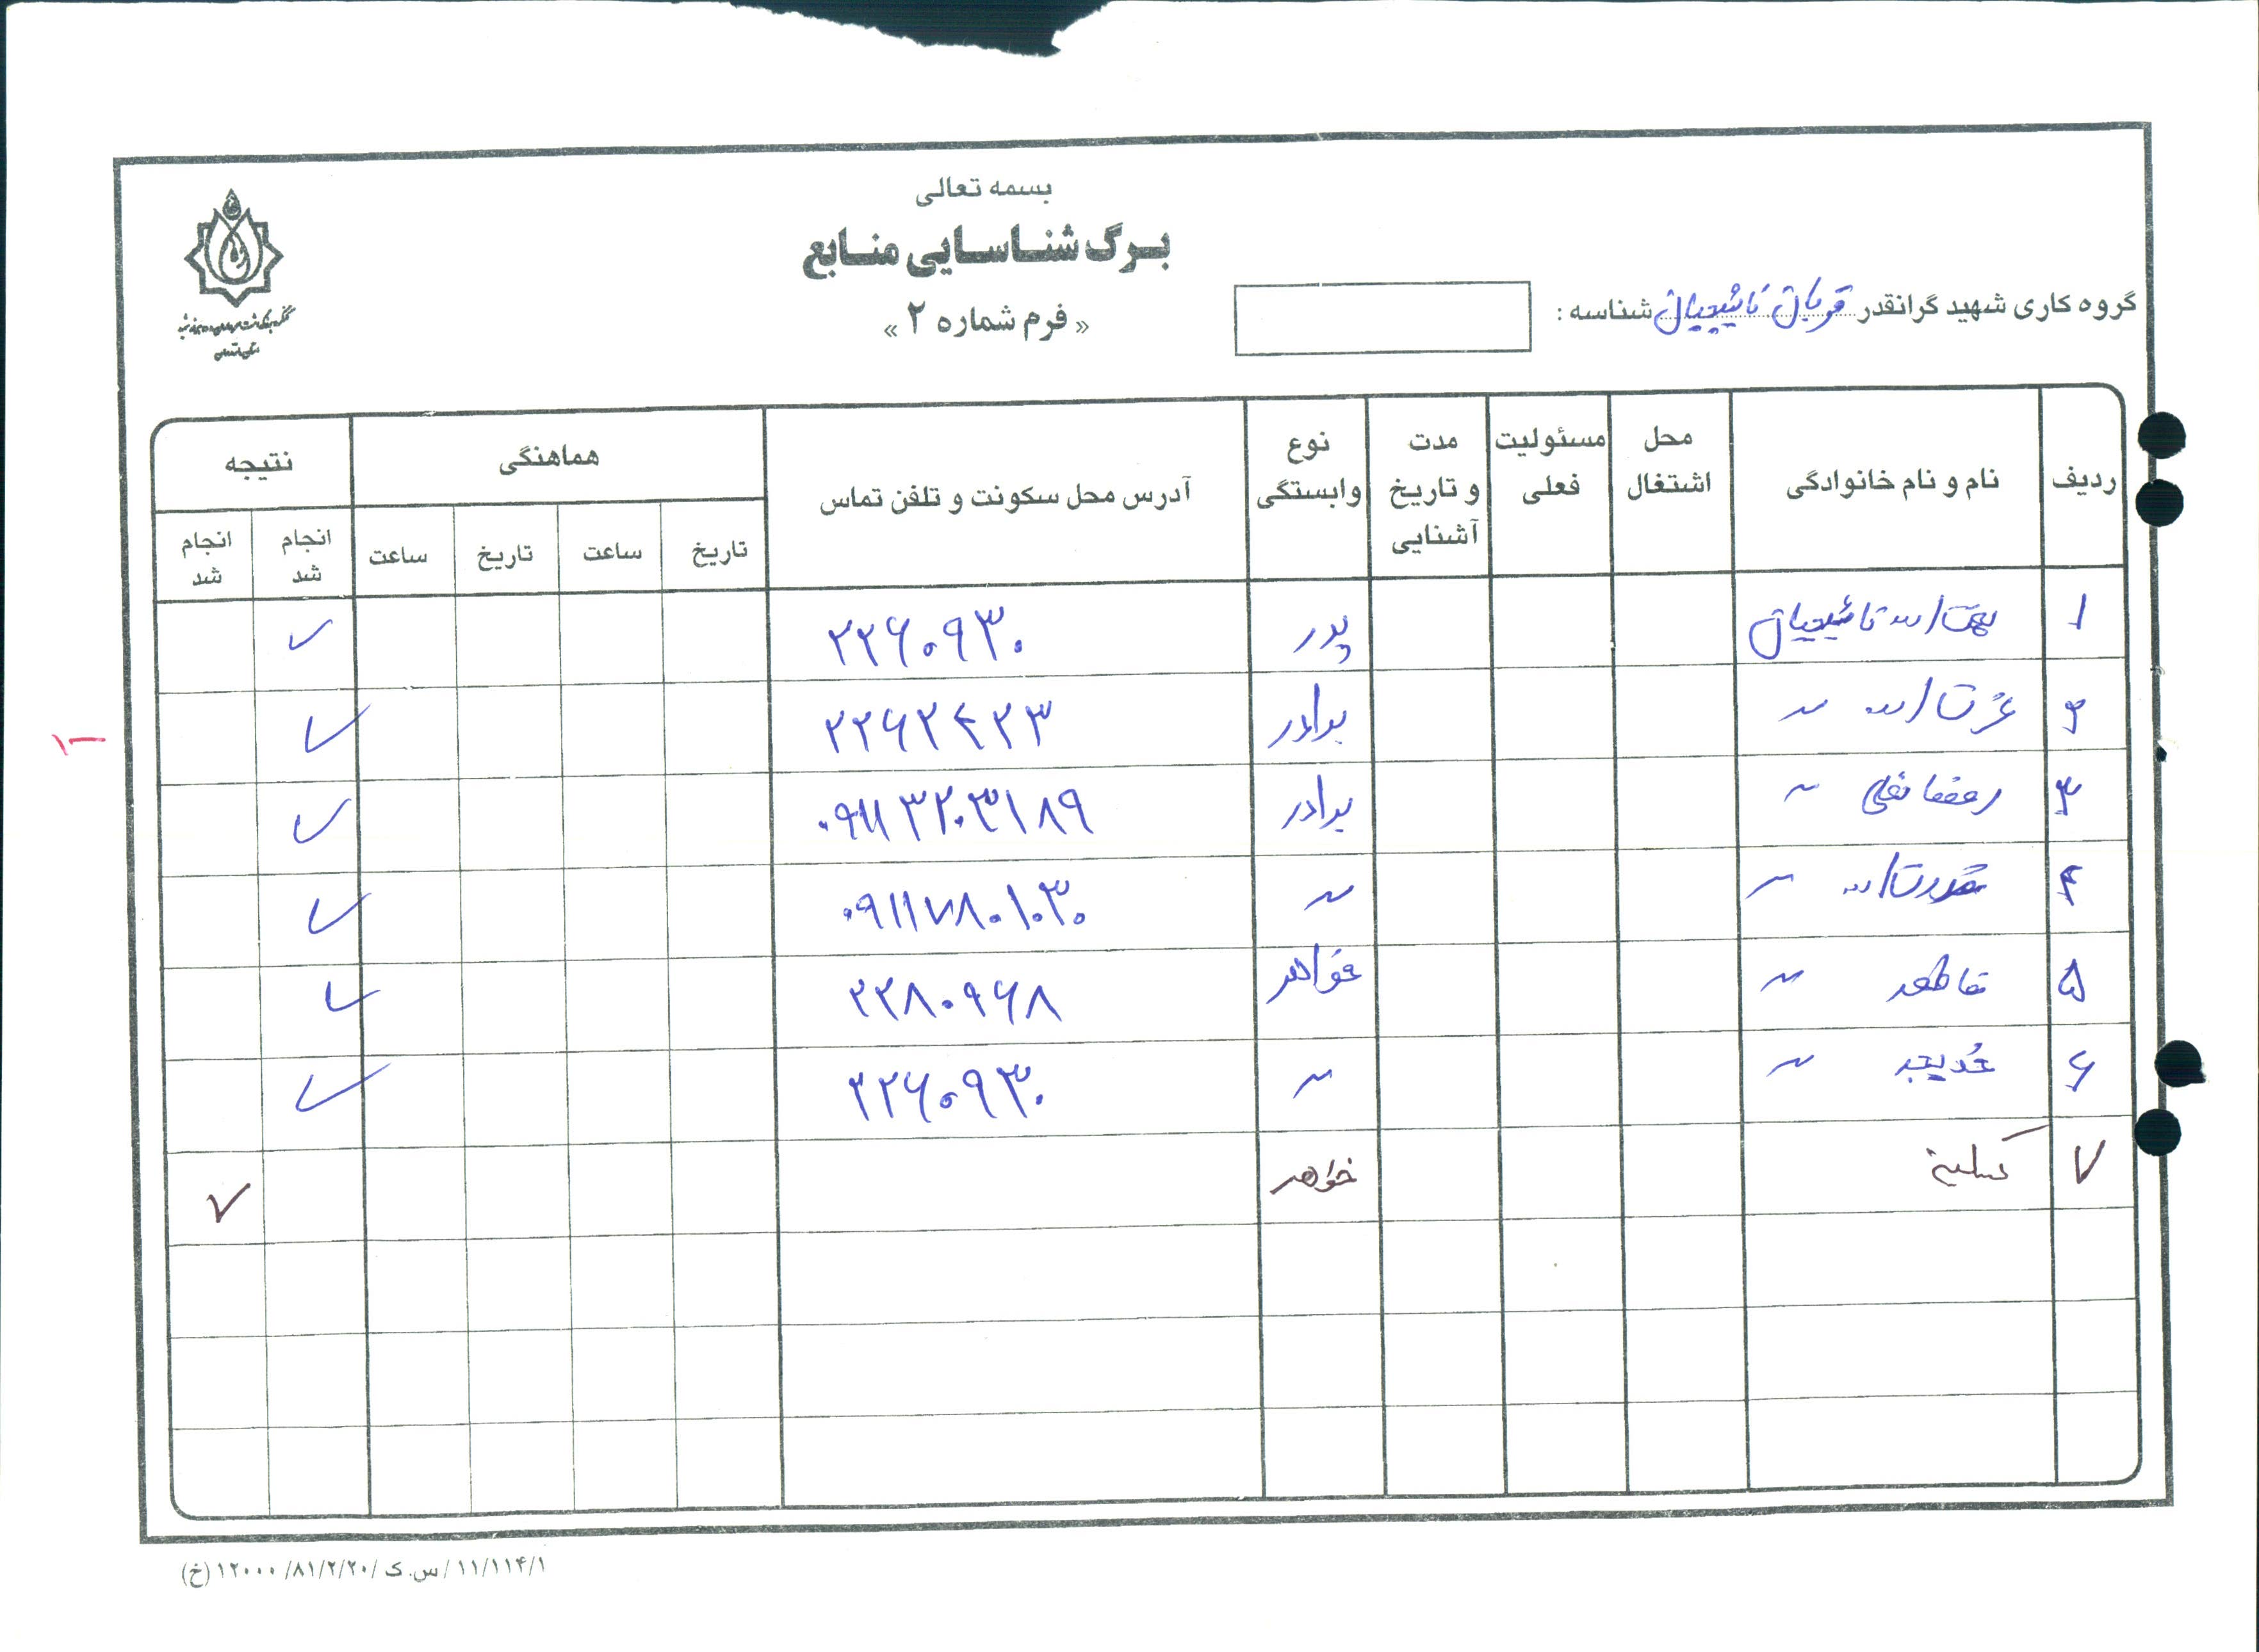 بسمه تعالی
برگ شناسایی منابع
« فرم شماره ۲ »
گروه کاری شهید گرانقدر قربان نائیجیان شناسه :
ردیف نام و نام خانوادگی محل اشتغال مسئولیت فعلی مدت و تاریخ آشنایی نوع وابستگی آدرس محل سکونت و تلفن تماس هماهنگی نتیجه
تاریخ ساعت تاریخ ساعت انجام شد انجام شد
۱ نائیجیان پدر ۲۲۶۰۹۳۰ ✓
۲ عزت الله ~ برادر ۲۲۶۲۴۲۳ ✓
۳ رمضانعلی ~ برادر ۰۹۱۱۳۲۰۳۱۸۹ ✓
۴ قدرت الله ~ ~ ۰۹۱۱۷۸۰۱۰۳۰ ✓
۵ فاطمه ~ خواهر ۲۲۸۰۹۶۸ ✓
۶ خدیجه ~ ~ ۲۲۶۰۹۳۰ ✓
۷ خواهر ✓
۱۱/۱۱۴/۱ /س.ک /۸۱/۲/۲۰ /۱۲۰۰۰ (خ)